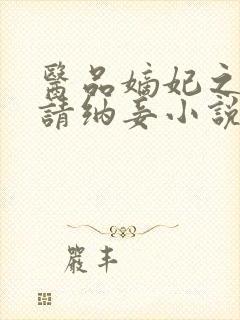 醫品嫡妃之
請納妾小說
嚴丰